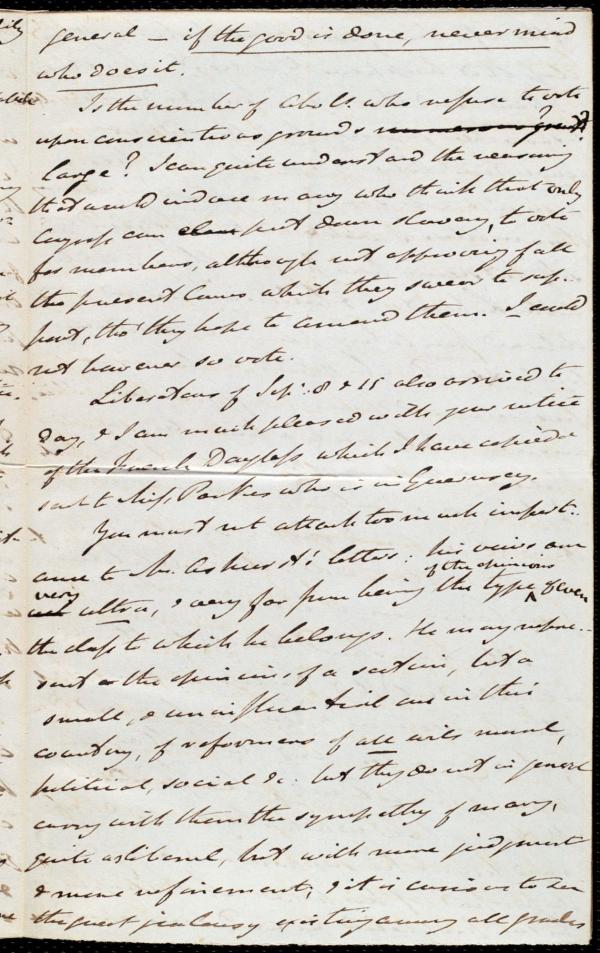 general — if the good is done, never mind
who does it.
Is the number of Abolts. who refuse to vote
upon conscientious grounds
large? I can quite understand the reasoning
that would induce many who think that only
Congress can put down slavery, to vote
for members, although not approving of all
the present Laws which they swear to sup-
port, tho' they hope to amend them. I could
not however so vote.
Liberators of Sep: 8 & 15 also arrived to
day, & I am much pleased with your notice
of the which I have copied &
sent to Miss Parkes who is in Guernsey.
You must not attach too much import-
ance to Mr. Ashurst's letters: his views are
of the opinions
very
ultra, & very far from being the type ^ of even
the class to which he belongs. He may repre-
sent the opinions of a certain, but a
small, & uninfluential one in this
country, of reformers of all evils moral,
political, social &c: but they do not in general
carry with them the sympathy of many,
quite as liberal, but with more judgment
& more refinement; & it is curious to see
the great jealousy existing among all grades